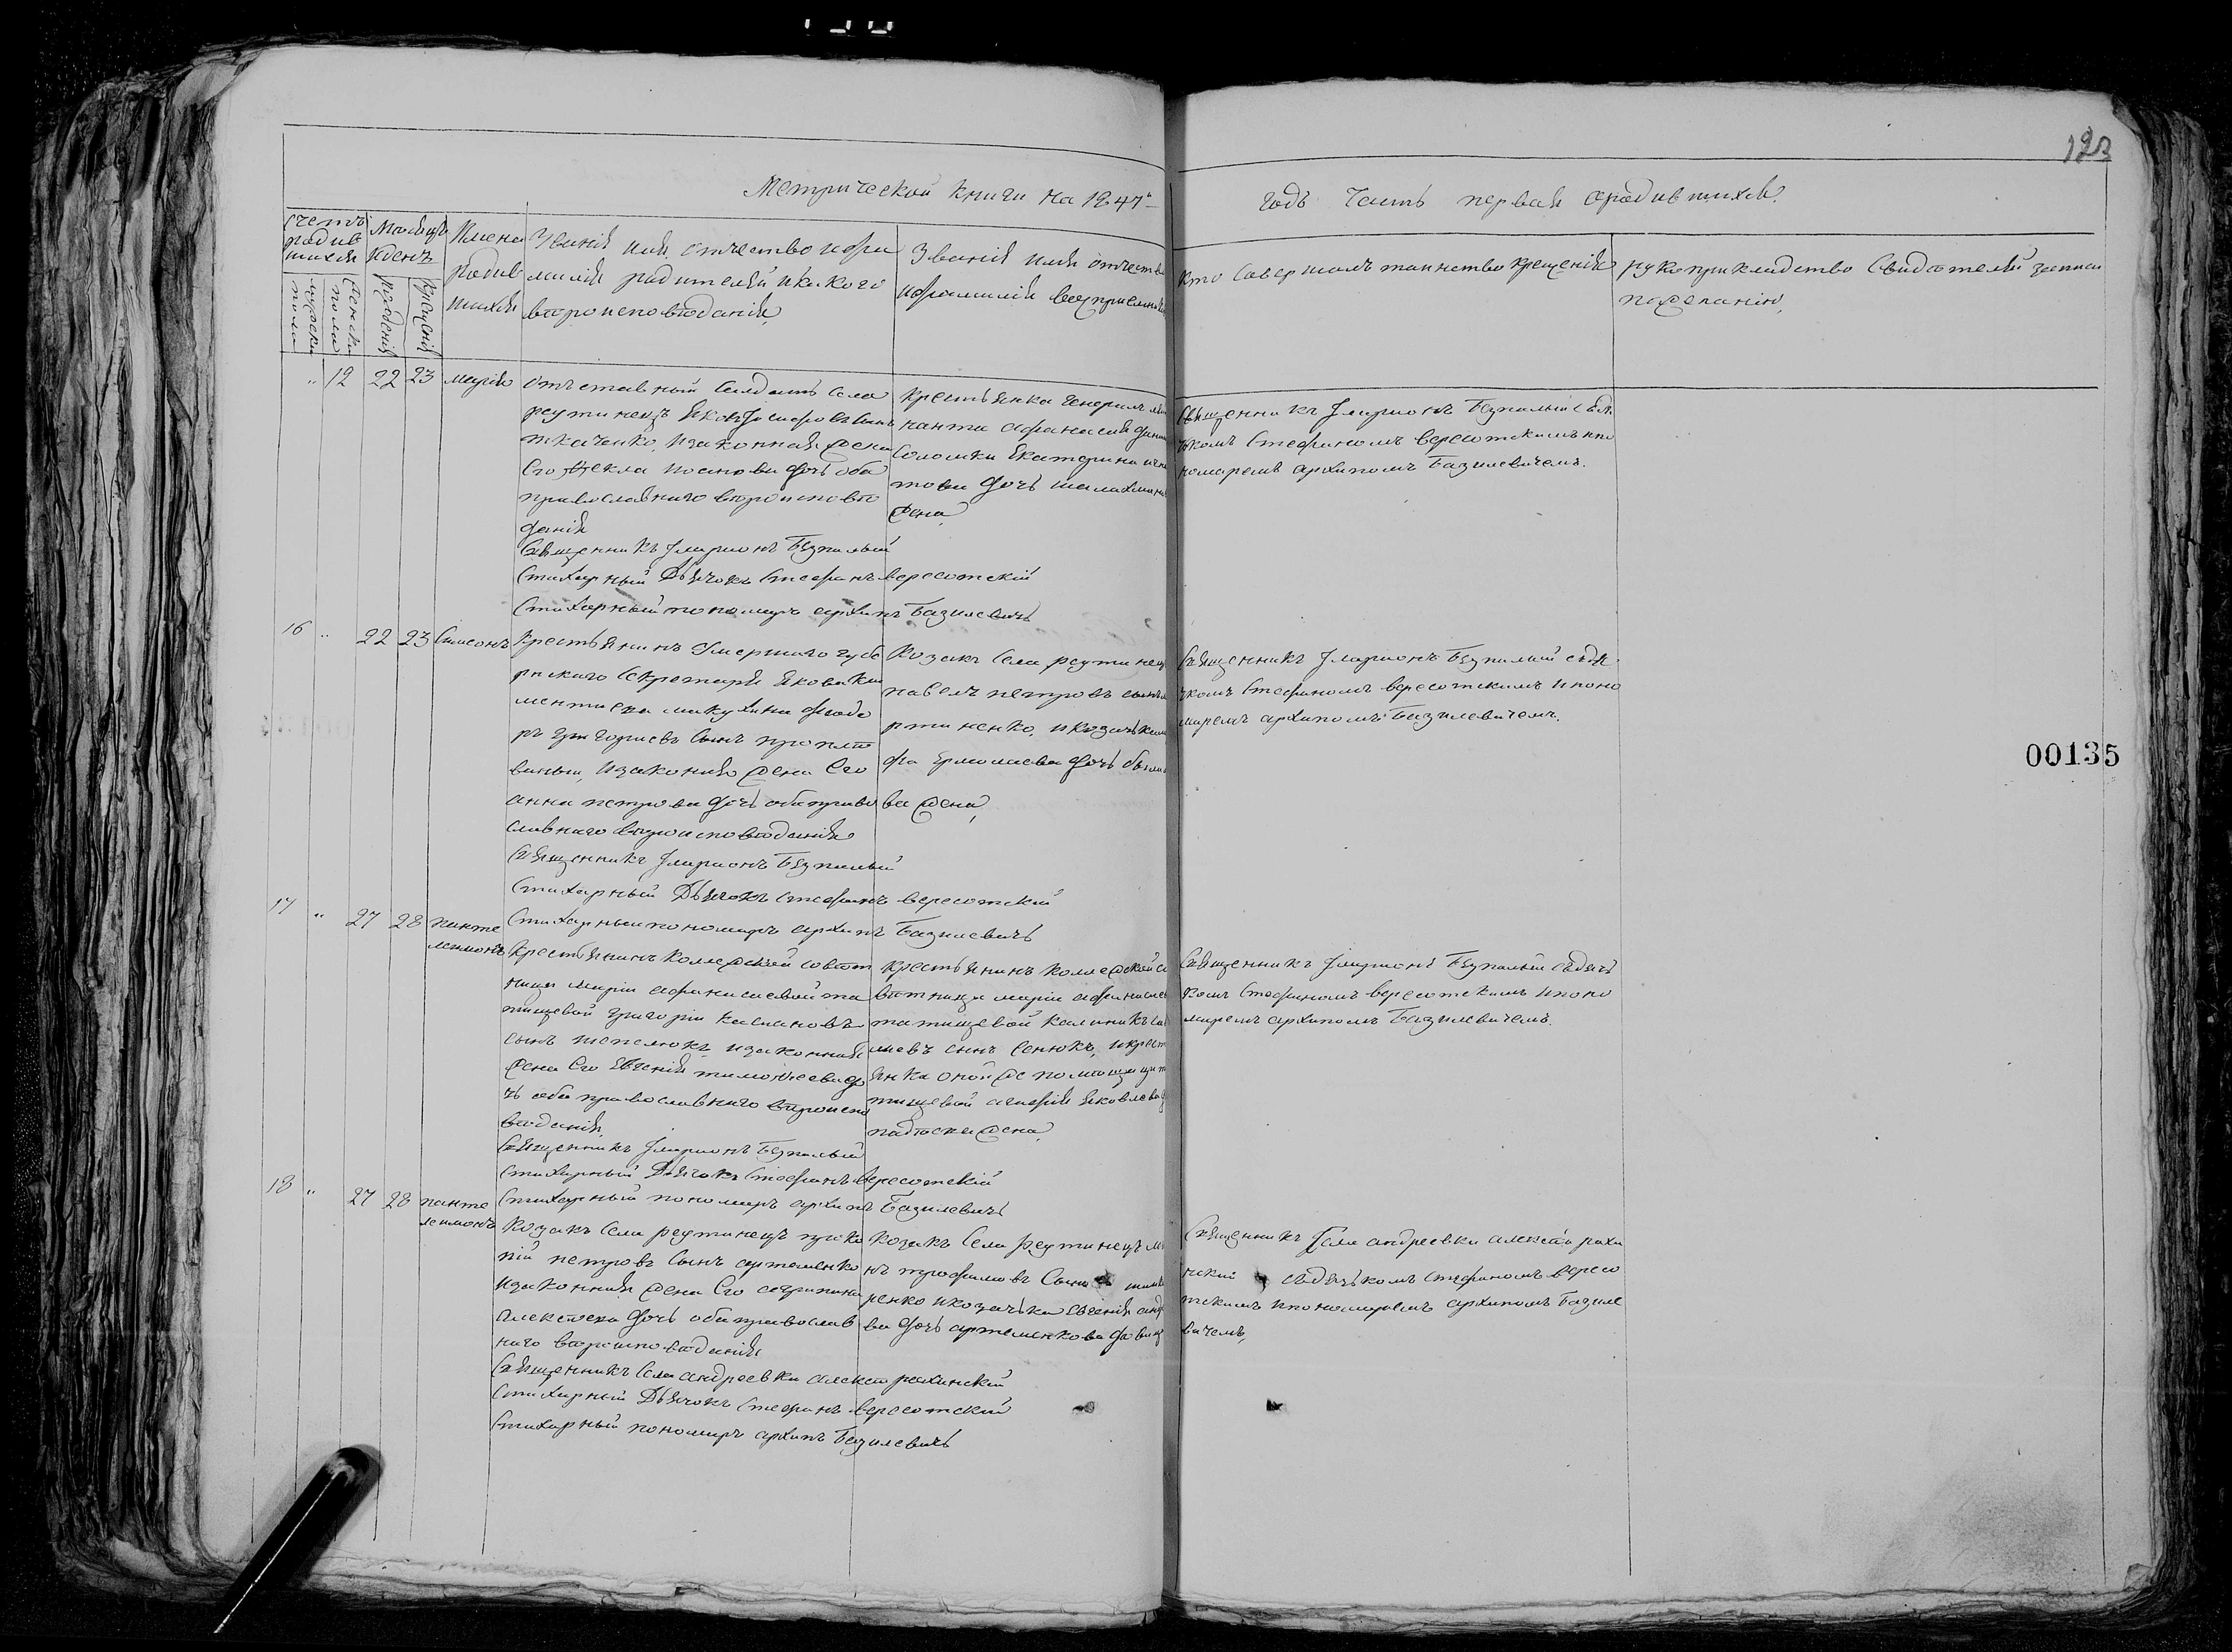 123
Метрической книги на 1847й
годъ Часть первая ородившихся.
Счетъ родив шихся
Мѣсяцъ и день
Имена родив шихся
Званія имя, отчество и фа
милія родителей и какого
вѣроисповѣданія,
Званія имя отчество
и фамилія воспріемниковъ
Кто совершалъ таинство крещенія
рукоприкладство свидѣтелей записи
по желанію,
мужеска пола
женска пола
рожденія
крещенія
„ 12 22 23 марія
отъставный Салдатъ Села
реутинецъ Іосифовъ Сынъ
ткаченко, изаконная жена
Его Ѳекла дочь оба
православнаго вѣроисповѣ
данія
Священникъ Іларионъ Безпалый
Стихарный Дьячокъ Стефанъ вересотскій
Стихарный пономарь архипъ Базилевичъ
крестьянка Генералъ
афанасія
Екатерина
това дочь
жена,
Священникъ Іларионъ Безпалый съ дья
чкомъ Стефаномъ вересотскимъ ипо
номаремъ архипомъ Базилевичемъ.
16 „ 22 23 Симеонъ
Крестьянинъ Умершаго губе
рнскаго Секретаря Якова
федо
ръ григориевъ Сынъ
изаконная жена Его
анна петрова дочь оба право
славнаго вѣроисповѣданія
Священникъ Іларионъ Безпалый
Стихарный Дьячокъ Стефанъ вересотскій
Стихарный пономарь архипъ Базилевичъ
Козакъ Села реутинецъ
павелъ петровъ сынъ
ртиненко, и козачька
Ермолаева дочь
ва жена,
Священникъ Іларионъ Безпалый съ дья
чкомъ Стефаномъ вересотскимъ ипоно
маремъ архипомъ Базилевичемъ.
00135
17 „ 27 28 панте
леимонъ
Крестьянинъ Коллежской совѣт
ницы Маріи афанасиевой та
тищевой григорій касяновъ
сынъ шепелюкъ, изаконная
жена Его Евгенія тимоѳеева до
чь оба православнаго вѣроиспо
вѣданія,
Священникъ Іларионъ Безпалый
Стихарный Дьячокъ Стефанъ вересотскій
Стихарный пономарь архипъ Базилевичъ
крестьянинъ коллежской со
вѣтницы маріи афанасиев
татищевой калиникъ
сынъ Сенюкъ, и крест
янка оной же помѣщицы
тищевой агафія яковлева
жена,
Священникъ Іларионъ Безпалый съ дьячь
комъ Стефаномъ вересотскимъ ипоно
маремъ архипомъ Базилевичемъ.
18 „ 27 28 панте
леимонъ
Козакъ Села реутинецъ проко
пій петровъ Сынъ артеменко
изаконная жена Его агрипина
Алексѣева дочь оба православ
наго вѣроисповѣданія
Священникъ Села андреевки алексѣй рахинскій
Стихарный Дьячокъ Стефанъ вересотскій
Стихарный пономарь архипъ Базилевичъ
козакъ Села реутинецъ
нъ трофимовъ Сынъ
ренко и козачька Евгенія
ва дочь артеменкова
Священникъ Села андреевки алексѣй рахи
нский съ дьячькомъ стефаномъ вересо
тскимъ ипономаремъ архипомъ Базиле
вичемъ,